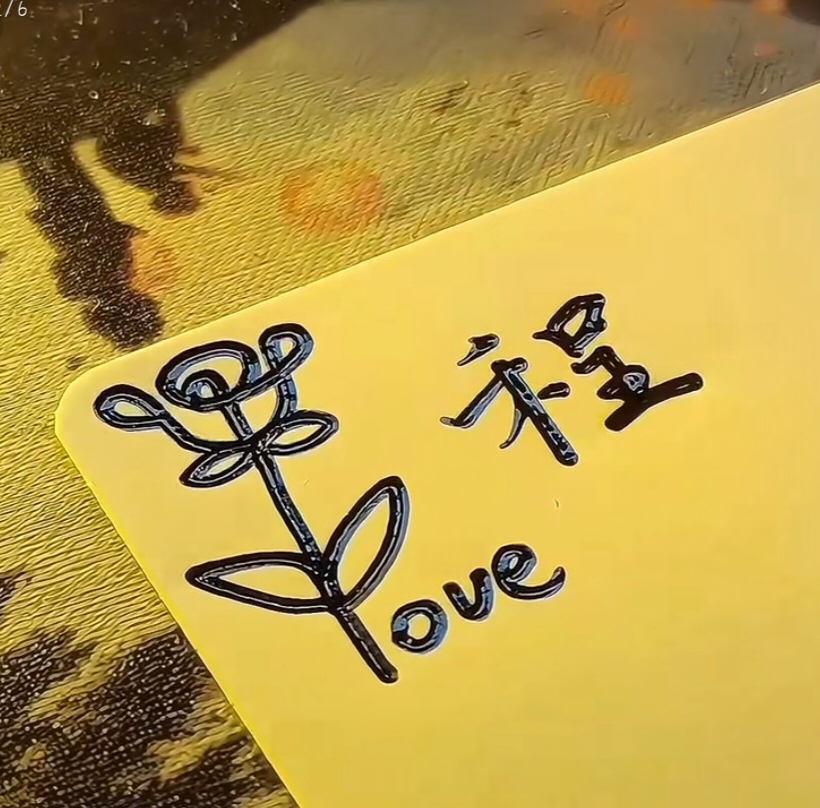 /6
程
love